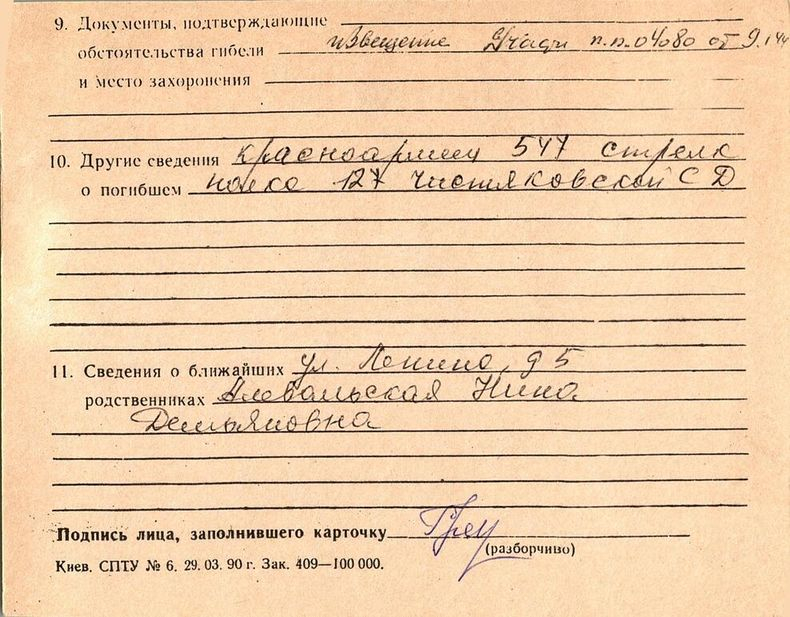 9. Документы, подтверждающие
обстоятельства гибели извещение п.п. 04080 от 9.1 44
и место захоронения
10. Другие сведения красноармеец 547 стрелк
о погибшем полка 127 Чистяковской СД
11. Сведения о ближайших ул. Ленина, д 5
родственниках Нина
Демьяновна
Подпись лица, заполнившего карточку
(разборчиво)
Киев. СПТУ № 6. 29. 03. 90 г. Зак. 409—100 000.